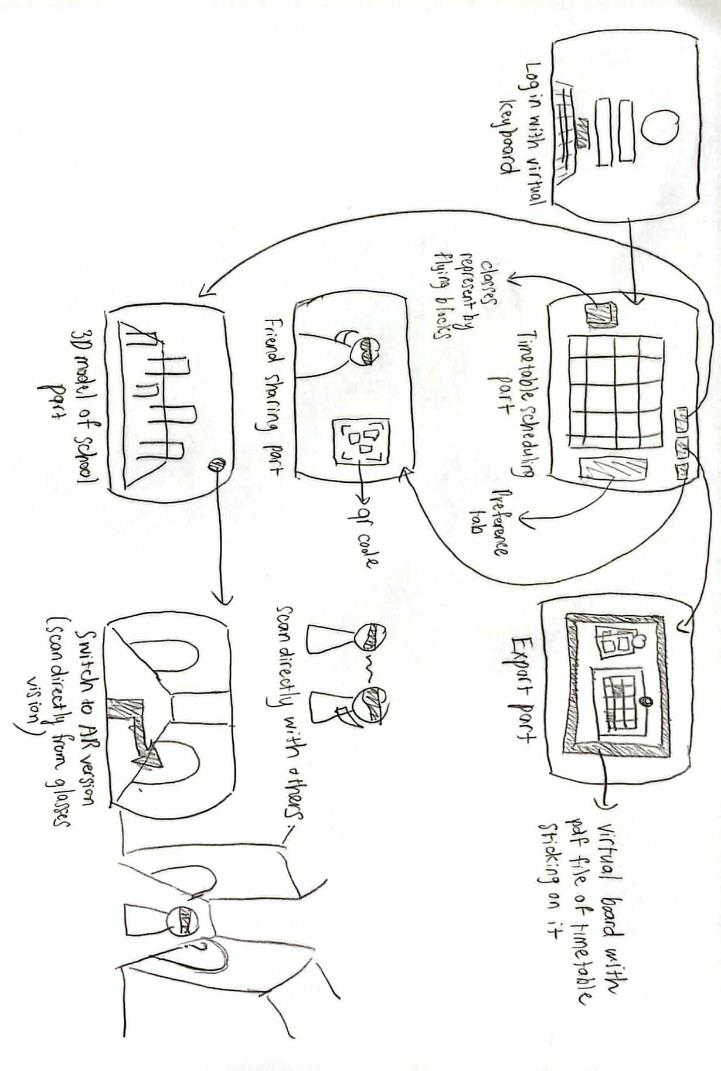 Log in with virtual
keyboard
classes
represent by
flying blocks
Timetable scheduling
part
Preference
tab
Export part
virtual board with
pdf file of timetable
sticking on it
Friend sharing part
qr code
scan directly with others
3D model of school
part
Switch to AR version
(scan directly from glasses
vision)